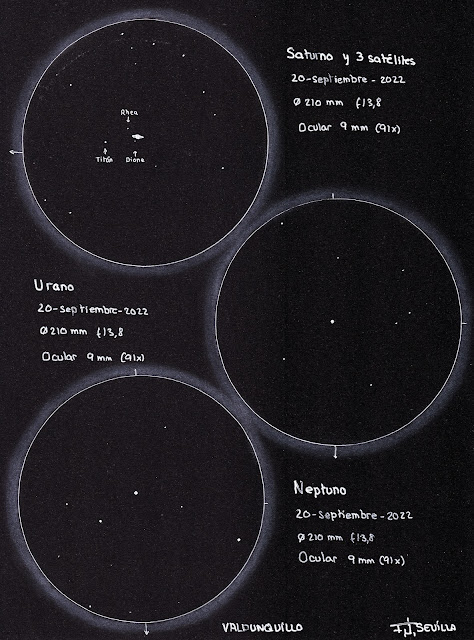 Saturno y 3 satélites
20-septiembre-2022
Ø 210 mm f13,8
Ocular 9 mm (91x)
Rhea
Titán
Dione
Urano
20-septiembre-2022
Ø 210 mm f13,8
Ocular 9 mm (91x)
Neptuno
20-septiembre-2022
Ø 210 mm f13,8
Ocular 9 mm (91x)
VALDUNQUILLO
SEVILLA